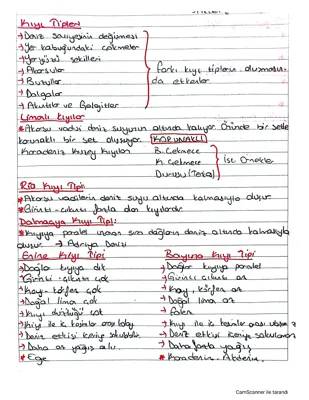 Kıyı Tipleri
→ Deniz seviyesinin değişmesi
→ Yer kabuğundaki çökmeler
→ Yeryüzü şekilleri
→ Akarsular
→ Buzullar
→ Dalgalar
→ Akıntılar ve Gelgitler
farklı kıyı tiplerin oluşmasın-
da etkenler
Limanlı Kıyılar
* Akarsu vadisi deniz suyunun altında kalıyor. Önünde bir setle
korunaklı bir set oluşuyor. KORUNAKLI
Karadeniz Kuzey kıyıları
B. Çekmece
K. Çekmece
ise örnektir
Ria Kıyı Tipi
* Akarsu vadilerin deniz suyu altında kalmasıyla oluşur.
* Girinti-çıkıntı fazla olan kıyılardır.
Dalmaçya Kıyı Tipi:
* Kıyıya paralel uzanan sıra dağların deniz altında kalmasıyla
oluşur. → Adriya Denizi
Enine Kıyı Tipi
→ Dağlar kıyıya dik
→ Girinti çıkıntı çok
→ Koy-körfez çok
→ Doğal liman çok
→ Kıyı ile iç kesimler arası kolay
→ Deniz etkisi içeriye sokulabilir.
→ Daha az yağış alır.
* Ege
Boyuna Kıyı Tipi
→ Dağlar kıyıya paralel
→ Girinti çıkıntı az
→ Koy, körfez az
→ Doğal liman az
→ Falez
→ Kıyı ile iç kesimler arası
→ Deniz etkisi içeriye sokulmaz
→ Daha fazla yağış
* Karadeniz, Akdeniz.
CamScanner ile tarandı